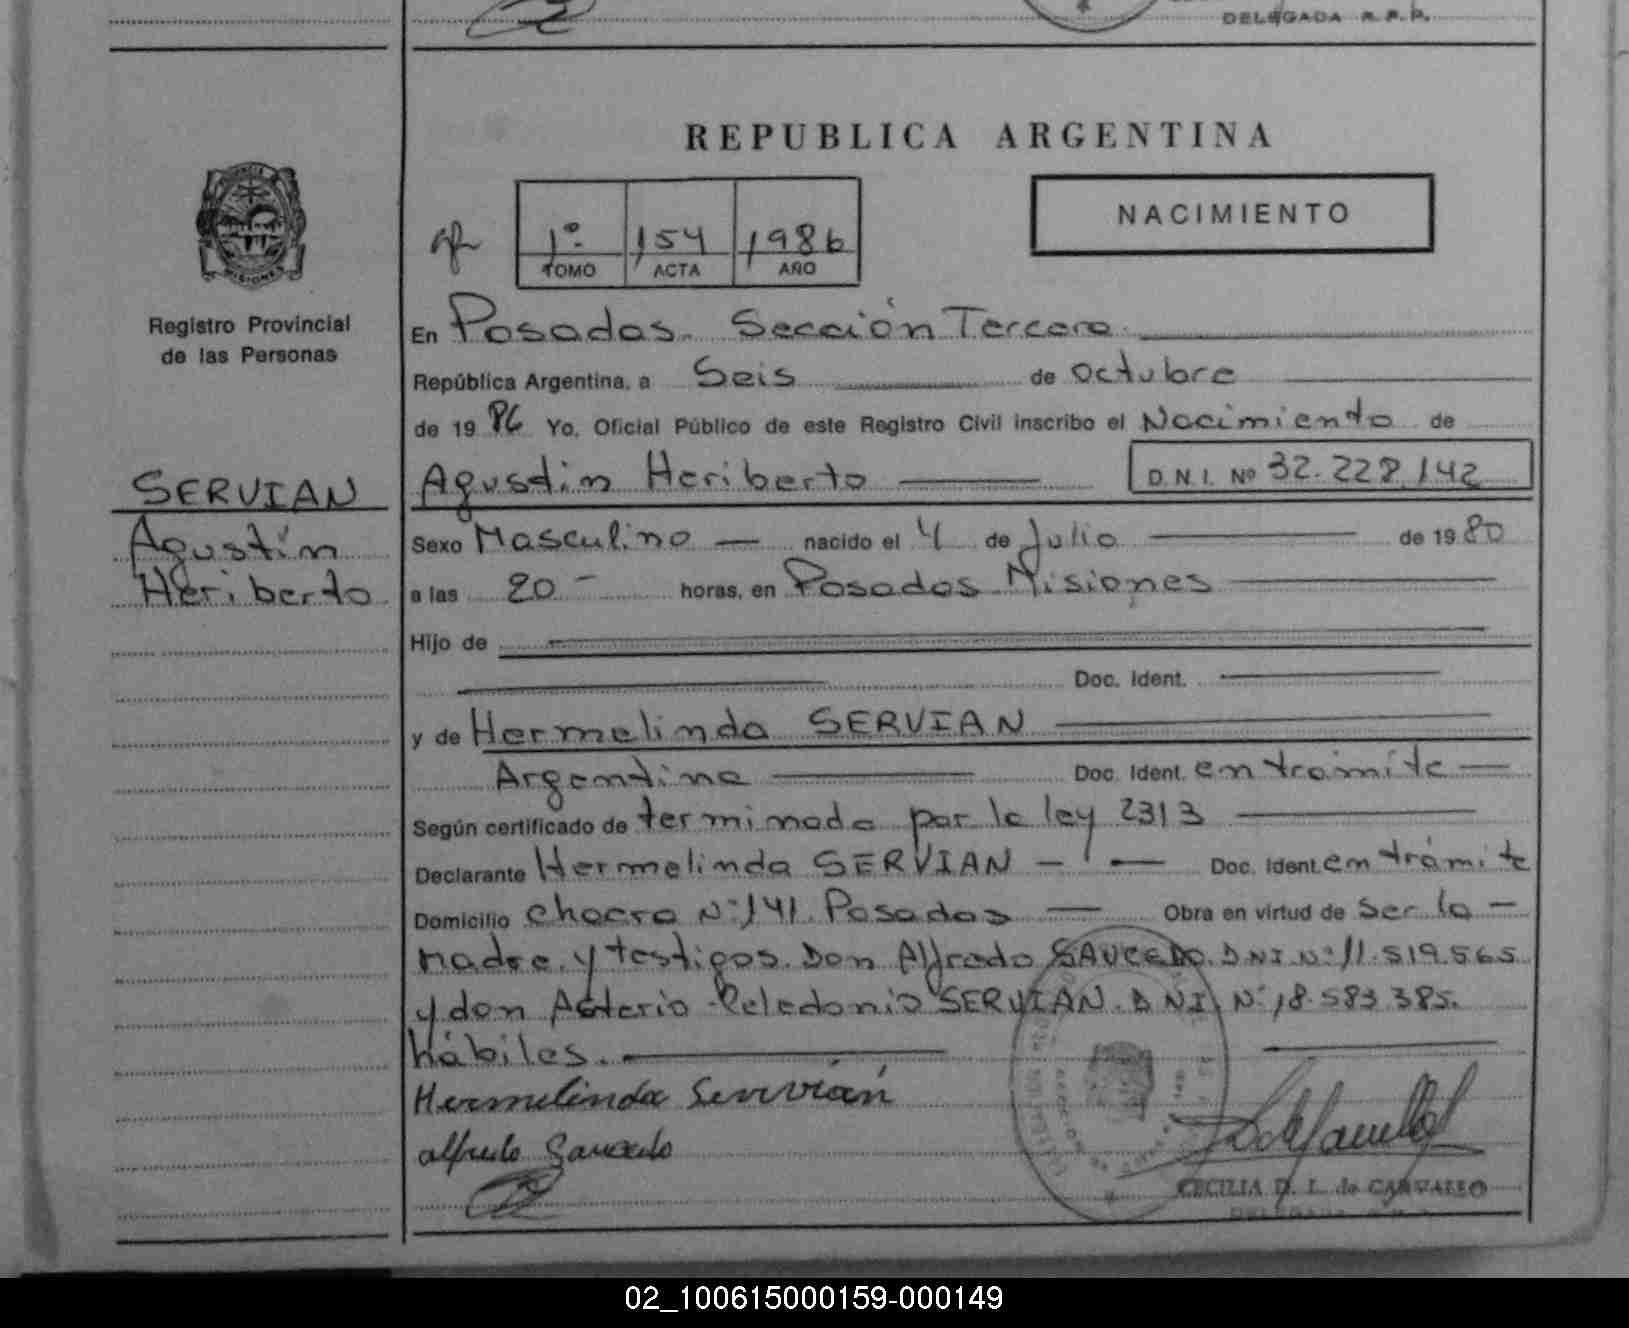 DELEGADA R.P.P.
REPUBLICA ARGENTINA
NACIMIENTO
1º 154 1986
TOMO ACTA AÑO
Registro Provincial
de las Personas
SERVIAN
Agustín
Heriberto
En Posadas. Sección Tercera
República Argentina, a Seis de octubre
de 1986 Yo, Oficial Público de este Registro Civil inscribo el Nacimiento de
Agustin Heriberto D.N.I. Nº 32.228.142
Sexo Masculino — nacido el 4 de Julio de 1980
a las 20 - horas, en Posadas Misiones
Hijo de
Doc. Ident.
y de Hermelinda SERVIAN
Argentina Doc. Ident. en tramite —
Según certificado de terminada por la ley 2313
Declarante Hermelinda SERVIAN - — Doc. Ident. en trámite
Domicilio chacra Nº 141. Posadas — Obra en virtud de ser la -
madre y testigos. Don Alfredo SAUCEDO. DNI Nº 11.519.565
y don Asterio Celedonio SERVIAN. DNI Nº 18.583.385.
hábiles.
Hermelinda Servián
alfredo Saucedo
CECILIA D. L. de CARVALLO
02_100615000159-000149